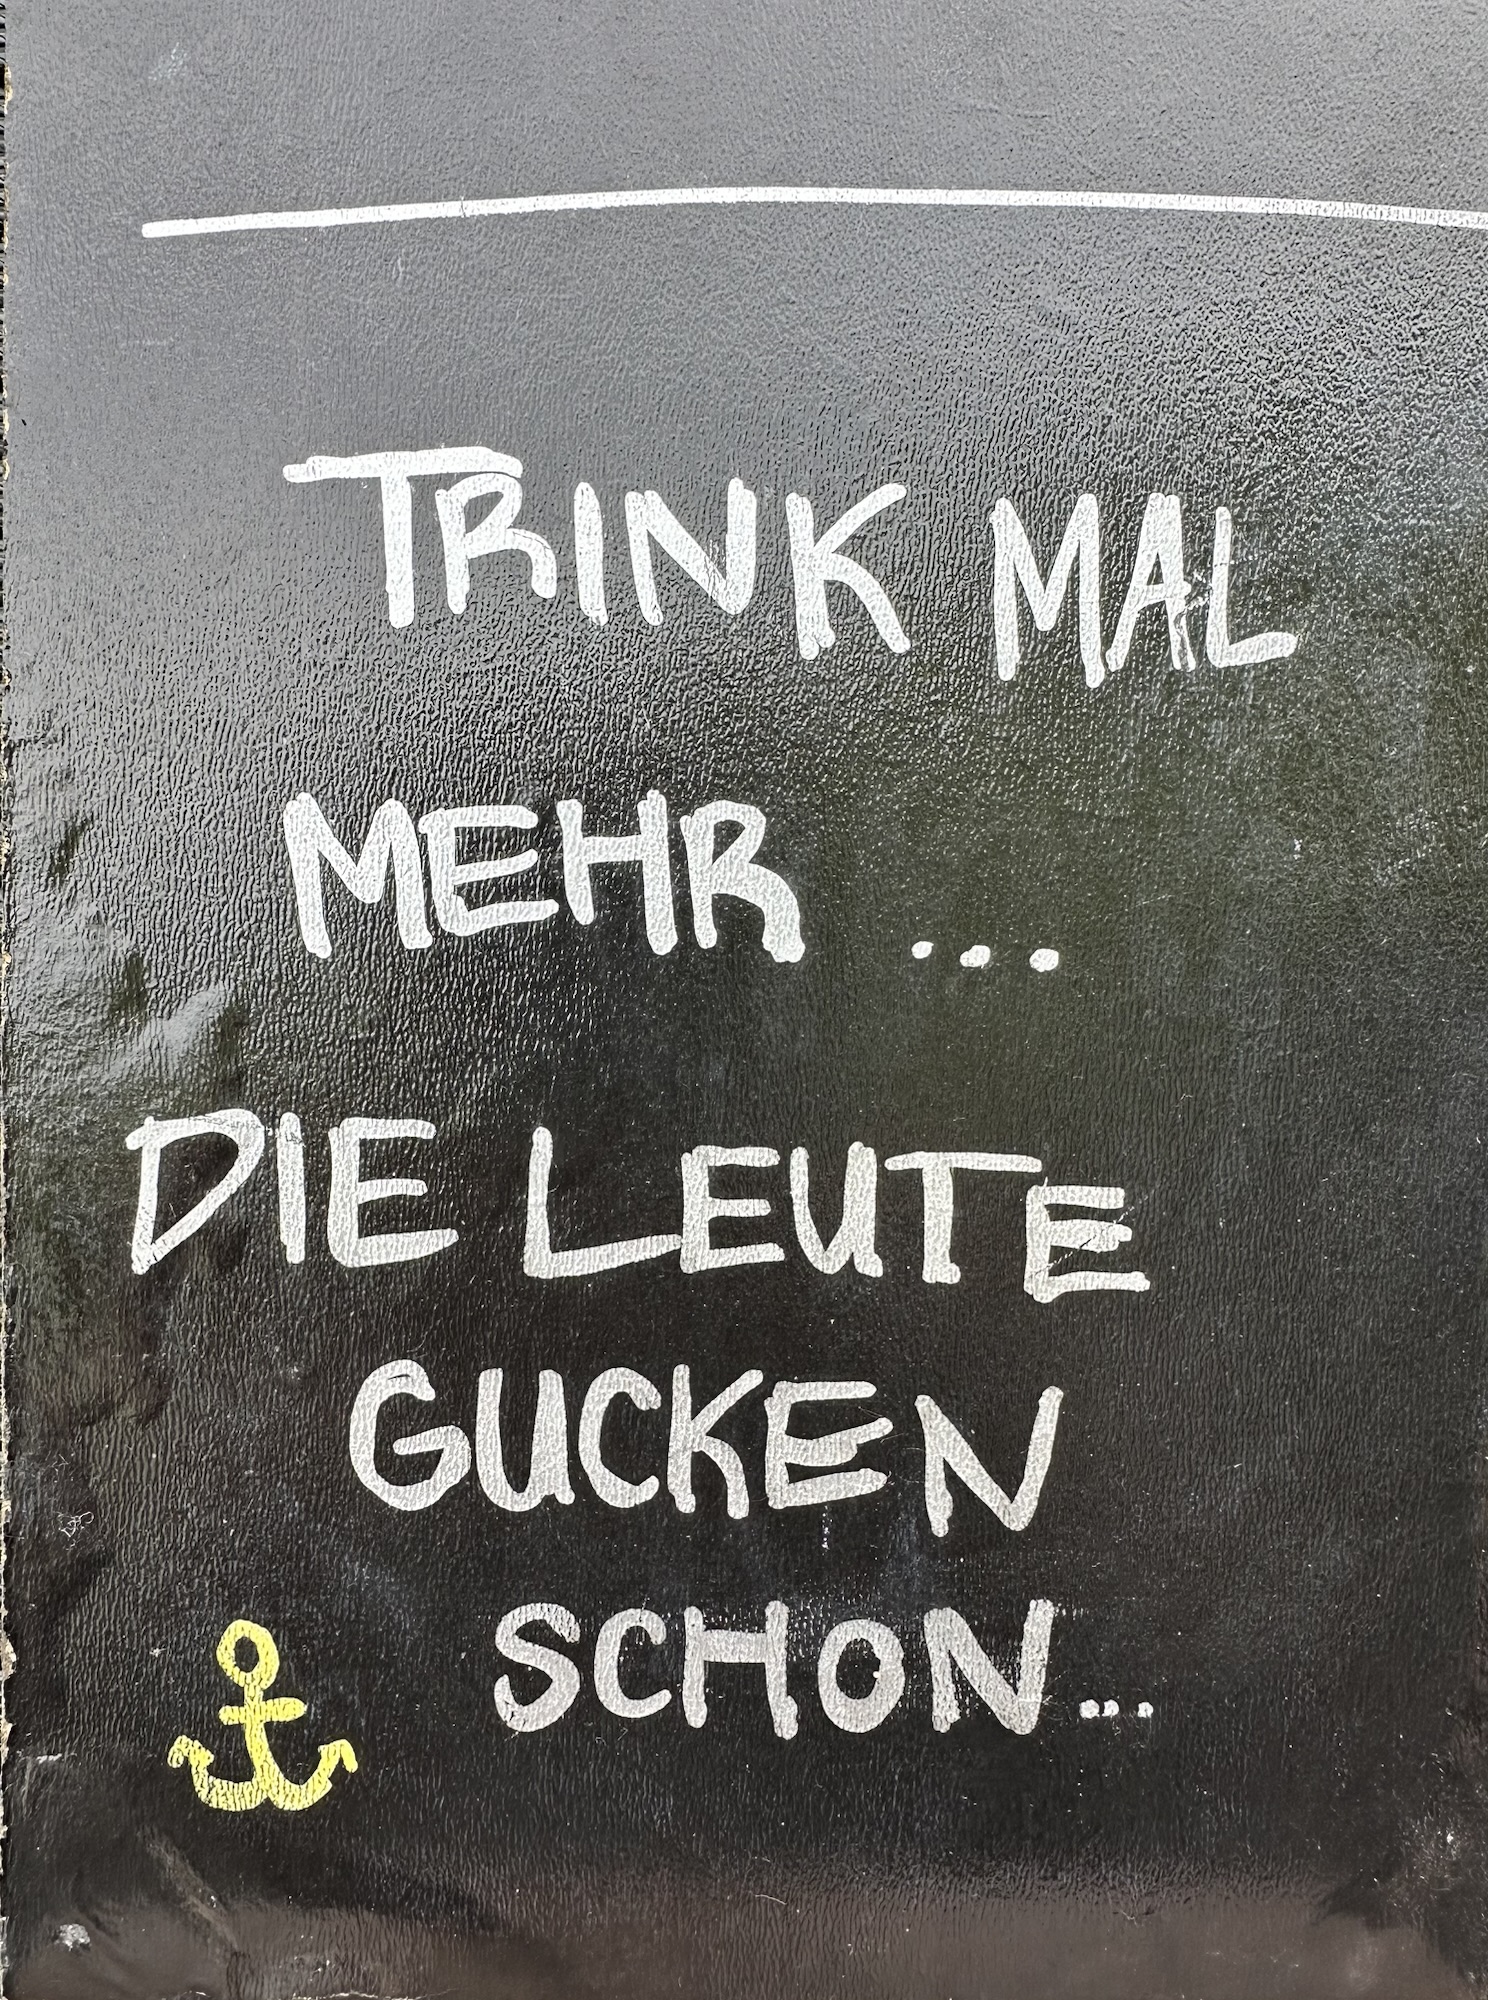 TRINK MAL
MEHR ...
DIE LEUTE
GUCKEN
SCHON...